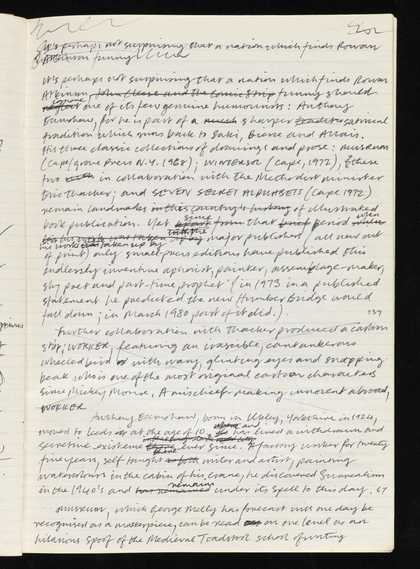 It's perhaps not surprising that a nation which finds Rowan
Atkinson funny
It's perhaps not surprising that a nation which finds Rowan
Atkinson John Cleese and the Comic Strip funny should
ignore one of its few genuine humourists: Anthony
Earnshaw, for he is part of a much sharper satirical
tradition which runs back to Saki, Bierce and Allais.
His three classic collections of drawings and prose: MUSRUM
(Cape/Grove Press N.Y. 1968); WINTERSOL (Cape, 1972), (these
two in collaboration with the Methodist minister
Eric Thacker; and SEVEN SECRET ALPHABETS (Cape 1972)
remain landmarks in this country's history of illustrated
book publication. Yet since that period when
his work was taken up by major publishers (all now out
of print) only small press editions have published this
endlessly inventive aphorist, painter, assemblage-maker,
shy poet and part-time prophet (in 1973 in a published
statement he predicted the new Humber Bridge would
fall down; in March 1980 part of it did.)
139
Further collaboration with Thacker produced a cartoon
strip, WOKKER, featuring an irascible, cantankerous
wheeled bird with wary, glinting eyes and snapping
beak who is one of the most original cartoon characters
since Mickey Mouse. A mischief-making innocent abroad,
WOKKER
Anthony Earnshaw, born in Ilkley, Yorkshire in 1924,
moved to Leeds at the age of 10 and has lived a withdrawn and
secretive existence there ever since. A factory worker for twenty
five years, self taught writer and artist, painting
watercolours in the cabin of his crane, he discovered Surrealism
in the 1940's and remains under its spell to this day. 67
Musrum, which George Melly has forecast will one day be
recognised as a masterpiece, can be read on one level as an
hilarious spoof of the Medieval Toadstool school of writing